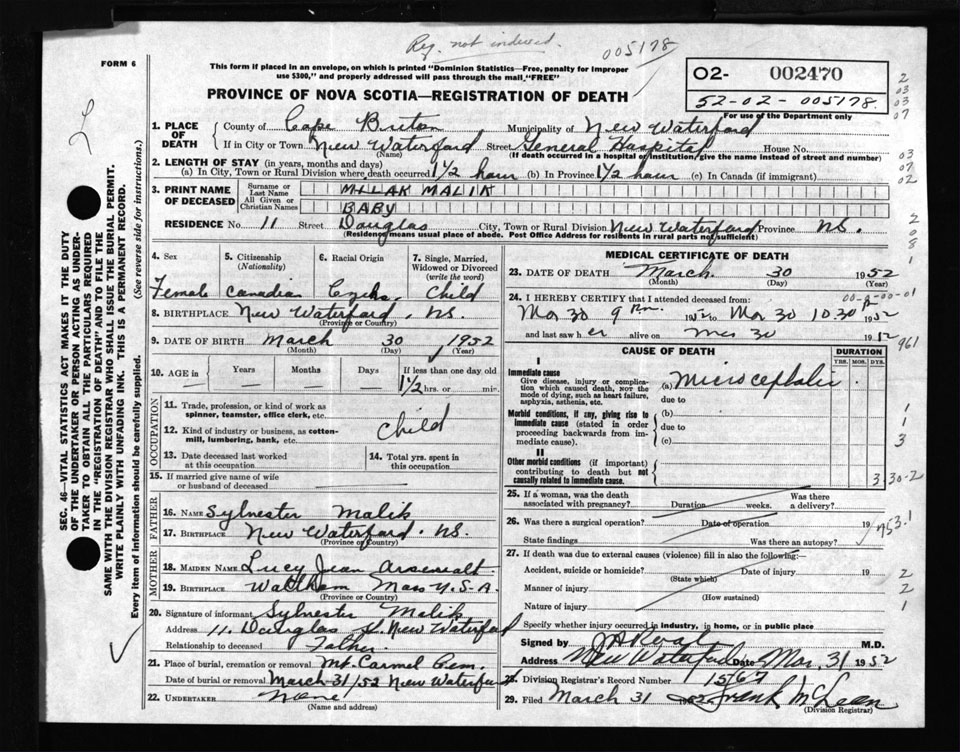 Reg. not indexed.
005178
FORM 6
This form if placed in an envelope, on which is printed "Dominion Statistics—Free, penalty for improper
use $300," and properly addressed will pass through the mail "FREE"
PROVINCE OF NOVA SCOTIA—REGISTRATION OF DEATH
02- 002470
52-02-005178.
For use of the Department only
1. PLACE OF DEATH County of Cape Breton Municipality of New Waterford
If in City or Town New Waterford Street General Hospital House No.
(Name) (If death occurred in a hospital or institution, give the name instead of street and number)
2. LENGTH OF STAY (in years, months and days)
(a) In City, Town or Rural Division where death occurred 1 1/2 hour (b) In Province 1 1/2 hour (c) In Canada (if immigrant)
3. PRINT NAME OF DECEASED Surname or Last Name MLLAK MALIK
All Given or Christian Names BABY
RESIDENCE No. 11 Street Douglas City, Town or Rural Division New Waterford Province NS.
(Residence means usual place of abode. Post Office Address for residents in rural parts not sufficient)
4. Sex 5. Citizenship (Nationality) 6. Racial Origin 7. Single, Married, Widowed or Divorced (write the word)
Female Canadian Child
8. BIRTHPLACE New Waterford, NS.
(Province or Country)
9. DATE OF BIRTH March 30 1952
(Month) (Day) (Year)
10. AGE in Years Months Days If less than one day old
1 1/2 hrs. or min.
OCCUPATION
11. Trade, profession, or kind of work as
spinner, teamster, office clerk, etc.
12. Kind of industry or business, as cotton-
mill, lumbering, bank, etc.
Child
13. Date deceased last worked
at this occupation
14. Total yrs. spent in
this occupation
15. If married give name of wife
or husband of deceased
FATHER
16. NAME Sylvester Malik
17. BIRTHPLACE New Waterford. NS.
(Province or Country)
MOTHER
18. MAIDEN NAME Lucy Jean Arsenalt
19. BIRTHPLACE Waltham Mass U.S.A.
(Province or Country)
20. Signature of informant Sylvester Malik
Address 11. Douglas St. New Waterford
Relationship to deceased Father.
21. Place of burial, cremation or removal Mt. Carmel Cem.
Date of burial or removal March 31/52 New Waterford
22. UNDERTAKER None
(Name and address)
MEDICAL CERTIFICATE OF DEATH
23. DATE OF DEATH March 30 1952
(Month) (Day)
24. I HEREBY CERTIFY that I attended deceased from:
Mar 30 9 P.m. 1952 to Mar 30 10.30 pm 1952
and last saw her alive on Mar 30 1952
CAUSE OF DEATH
DURATION
YRS. MOS. DYS.
I
Immediate cause
Give disease, injury or complica-
tion which caused death, NOT the
mode of dying, such as heart failure,
asphyxia, asthenia, etc.
(a) Microcephalic
due to
Morbid conditions, if any, giving rise to
immediate cause (stated in order
proceeding backwards from im-
mediate cause).
(b)
due to
(c)
II
Other morbid conditions (if important)
contributing to death but not
causally related to immediate cause.
25. If a woman, was the death
associated with pregnancy? Duration weeks. Was there
a delivery?
26. Was there a surgical operation? Date of operation 19
State findings Was there an autopsy?
27. If death was due to external causes (violence) fill in also the following:—
Accident, suicide or homicide? Date of injury 19
(State which)
Manner of injury
(How sustained)
Nature of injury
Specify whether injury occurred in industry, in home, or in public place
Signed by M.D.
Address New Waterford Date Mar. 31 1952
28. Division Registrar's Record Number 1567
29. Filed March 31 1952 Frank McLean
(Division Registrar)
SEC. 46—VITAL STATISTICS ACT MAKES IT THE DUTY
OF THE UNDERTAKER OR PERSON ACTING AS UNDER-
TAKER TO OBTAIN ALL THE PARTICULARS REQUIRED
IN THE "REGISTRATION OF DEATH" AND TO FILE THE
SAME WITH THE DIVISION REGISTRAR WHO SHALL ISSUE THE BURIAL PERMIT.
WRITE PLAINLY WITH UNFADING INK. THIS IS A PERMANENT RECORD.
Every item of information should be carefully supplied. (See reverse side for instructions.)
2
03
03
07
03
07
02
2
0
8
1
00-8-00-01
961
1
1
3
3 30-2
753.1
2
2
1